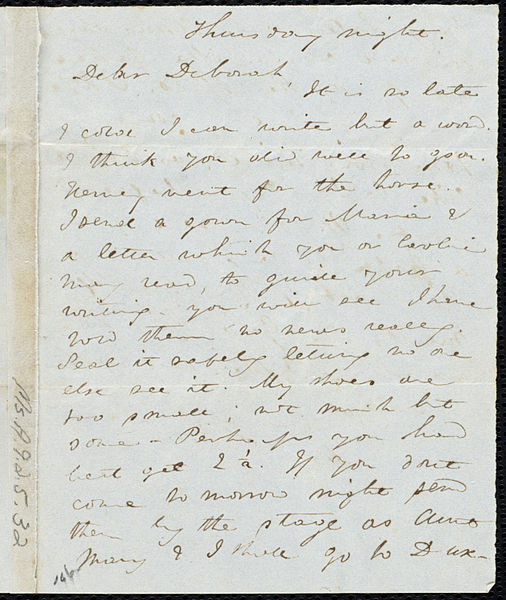 Thursday night.
Dear Deborah
It is so late
& cold I can write but a word.
I think you did well to go on.
Henry went for the horse.
I send a gown for Maria &
a letter which you or Caroline
may read, to guide your
writing. you will see I have
told them no news really.
Seal it safely letting no one
else see it. My shoes are
too small; not much but
some - Perhaps you had
best get 2 ½. If you don't
come to morrow night send
them by the stage as Aunt
Mary & I shall go to Dux-
Ms.A.9.2.5.32